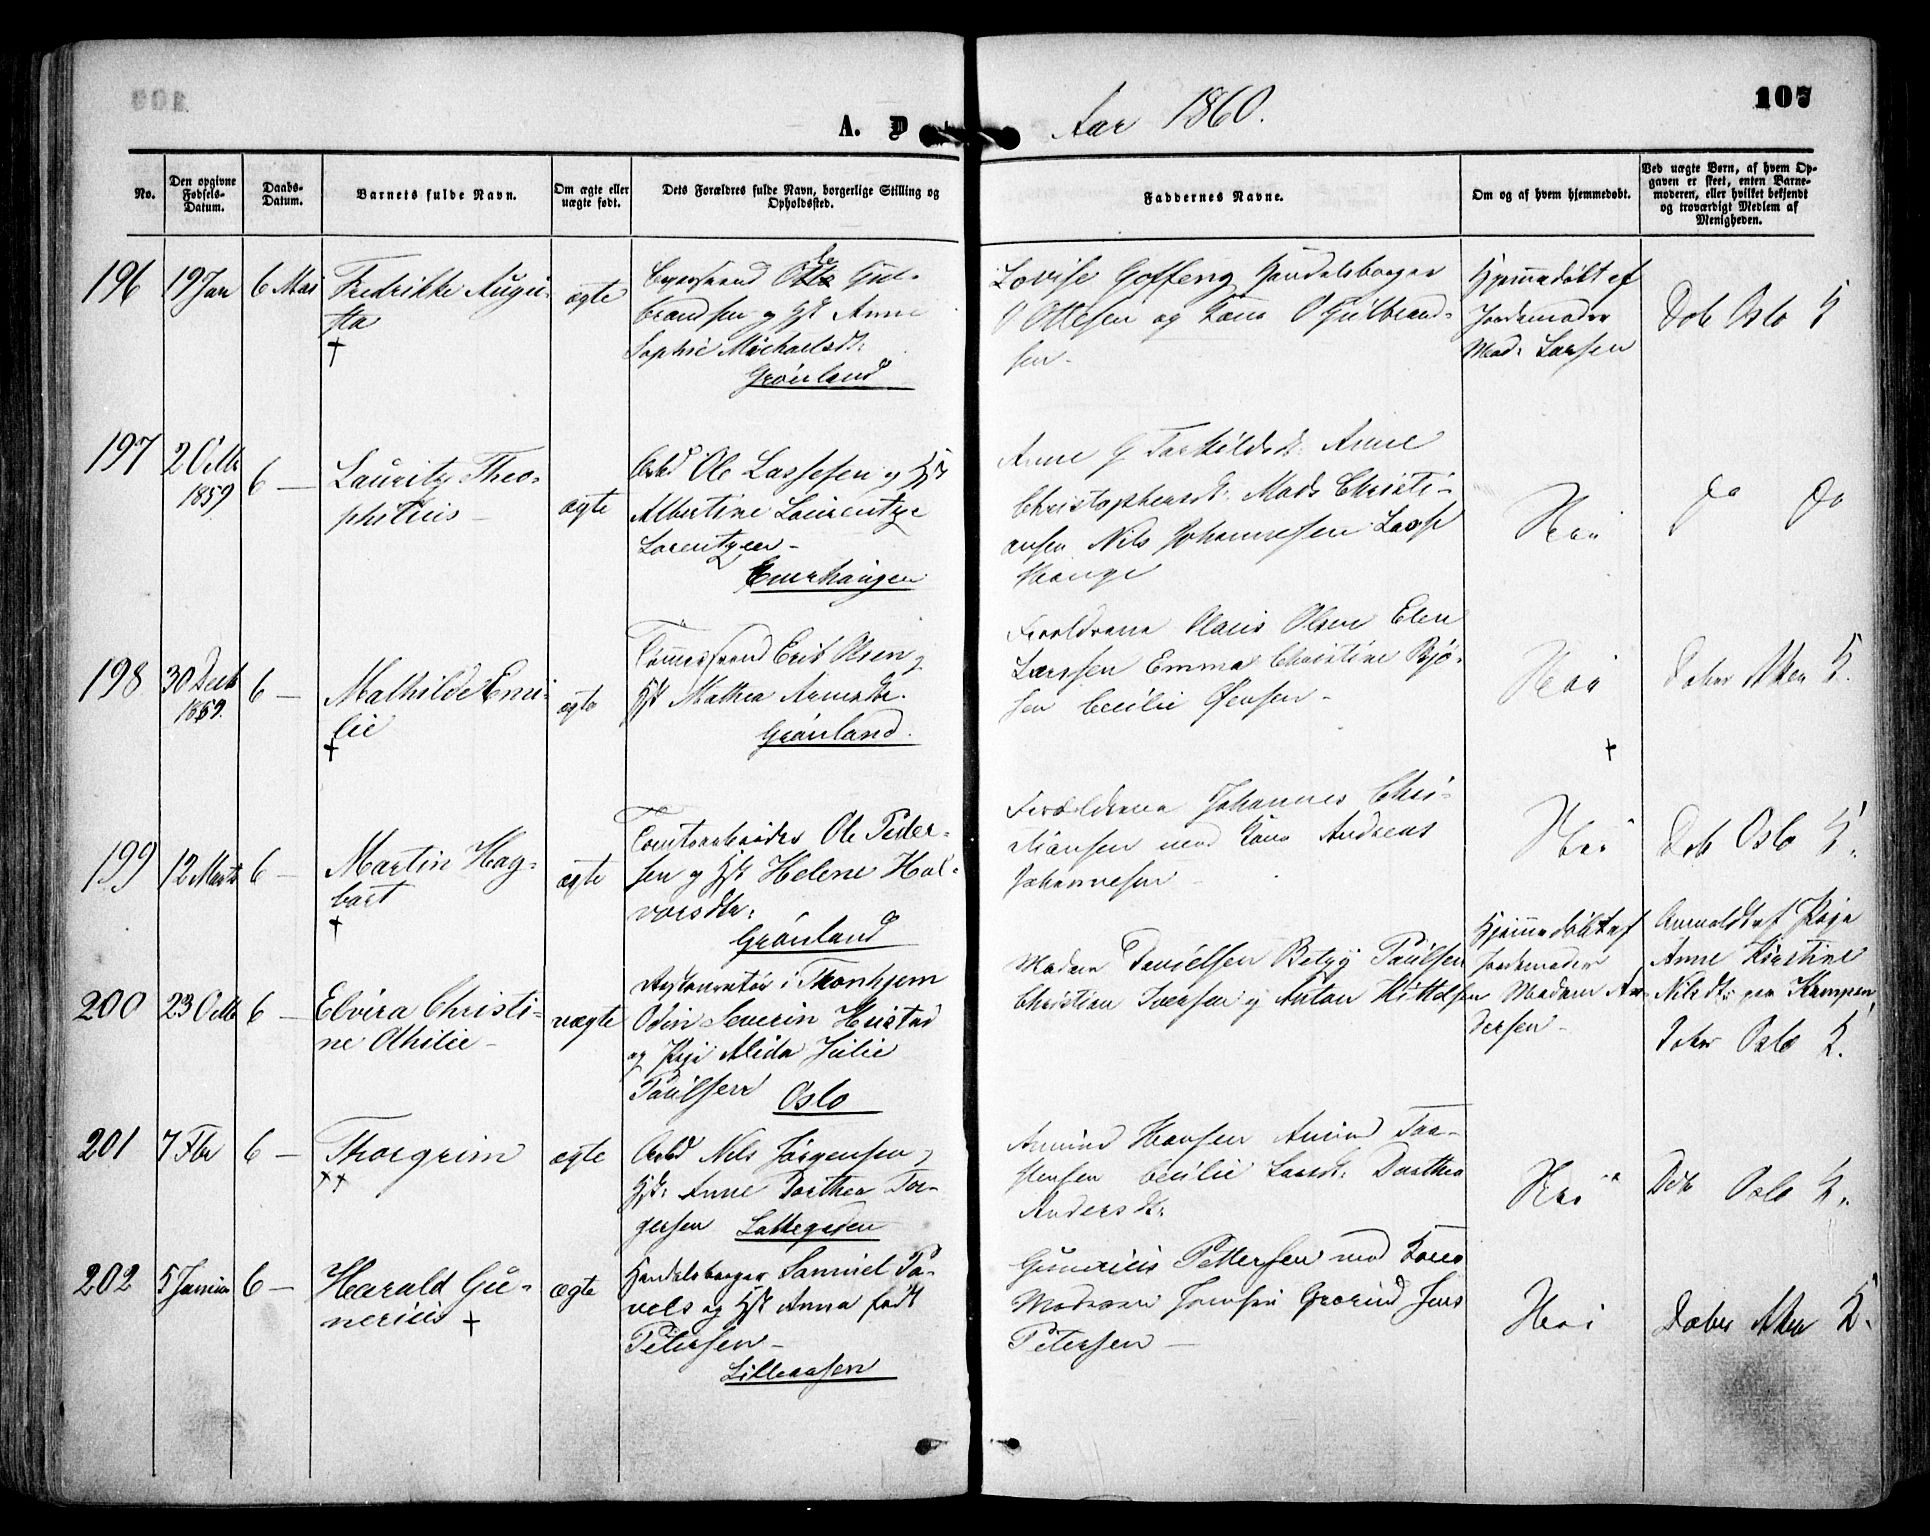 A. D
Aar 1860.
107
No.
Den opgivne Fødsels-Datum.
Daabs-Datum.
Barnets fulde Navn.
Om ægte eller uægte født.
Dets Forældres fulde Navn, borgerlige Stilling og Opholdssted.
Faddernes Navne.
Om og af hvem hjemmedøbt.
Ved uægte Børn, af hvem Opgaven er skeet, enten Barnemoderen, eller hvilket bekjendt og troværdigt Medlem af Menigheden.
196
19 Jan
6 Mai
Fredrikke Augu-
sta
†
ægte
Gul-
brandsen og Hst Anne
Sophie Michaelsdt:
Grönland
Lovise Goffeng Handelsborger
O Ottesen og Kone O Gulbrand-
sen
Hjemmedøbt af
Jordemoder
Mad: Larsen
Døb Oslo K
197
2 Octb
1859
6 —
Lauritz Theo-
philius —
ægte
Arbd Ole Lassesen og Hst
Albertine Laurentze
Lorentzen —
Enerhaugen
Anne G Torkildsdt: Anne
Christophersdt: Mads Christi-
ansen Nils Johannesen Lasse
Hauge
Nei
do do
198
30 Decb
1859.
6 —
Mathilde Emi-
lie
†
ægte
Tömmermand Erik Olsen og
Hst Mathea Arnesdtr.
Grönland.
Forældrene Olaus Olsen Elen
Larssen Emma Christine
sen Cecilie Jensen —
Nei
†
Døber Aker K.
199
12 Marts
6 —
Martin Hag-
bart
†
ægte
Tomtearbeider Ole Peder-
sen og Hst Helene Hal-
vorsdtr:
Grönland
Forældrene Johannes Chri-
stiansen med Kone Andreas
Johannesen —
Nei
Døb Oslo K.
200
23 Octb
6 —
Elvira Christi-
ne Othilie —
uægte
i Thronhjem
Odin Severin Hustad
og Pige Alida Julie
Paulsen Oslo
Madam Danielsen Betzy Paulsen
Christian Iversen og Anton Kittelsen
Hjemmedøbt af
Jordemoder
Madam An-
dersen —
Anmeldt af Pige
Anne Kirstine
Nilsdt: paa Kampen
Døber Oslo K.
201
7 Fbr
6 —
Thorgrim
††
ægte
Arbd Nils Jörgensen og
Hst: Anne Dorthea Tor-
gersen Lakkegaden
Amund Hansen Amund Tor-
stensen Cecilie Larsdt: Dorthea
Andersdt:
Nei
Døb Oslo K.
202
5 Januar
6 —
Harald Gu-
nerius †
ægte
Handelsborger Samuel Pa-
vels og Hst Anna født
Petersen —
Lilleaasen
Gunerius Pettersen med Kone
Madam Jensen Jens
Petersen —
Nei
Døber Aker K.